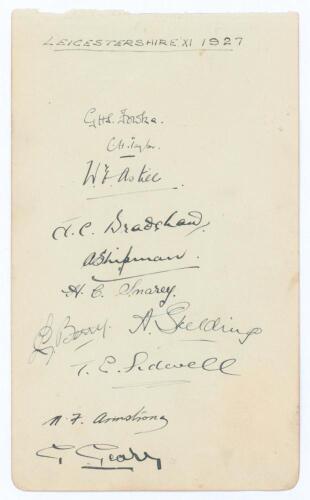 LEICESTERSHIRE XI 1927
G.H.S. Fowke.
C.H. Taylor.
W.E. Astill
J.C. Bradshaw.
A Shipman.
H. C. Snary.
G Berry. A. Skelding
T. E. Sidwell
N. F. Armstrong
G. Geary